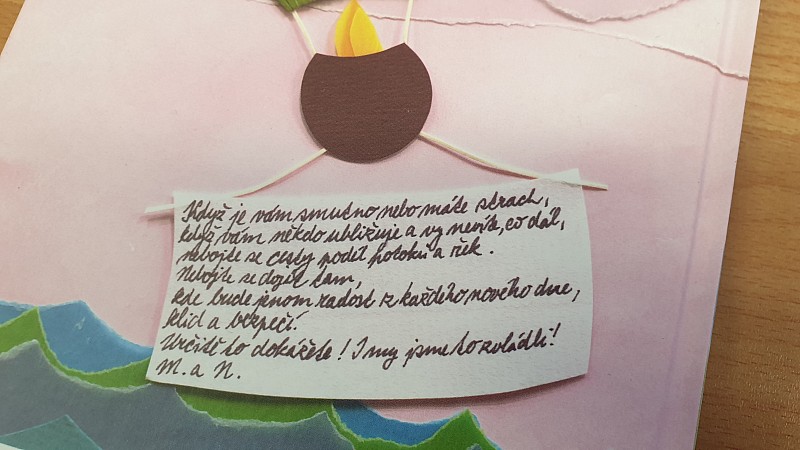 Když je vám smutno nebo máte strach,
když vám někdo ubližuje a vy nevíte, co dál,
nebojte se cesty podél potoků a řek.
Nebojte se dojít tam,
kde bude jenom radost z každého nového dne,
klid a bezpečí.
Určitě to dokážete! I my jsme to zvládli!
M. a N.